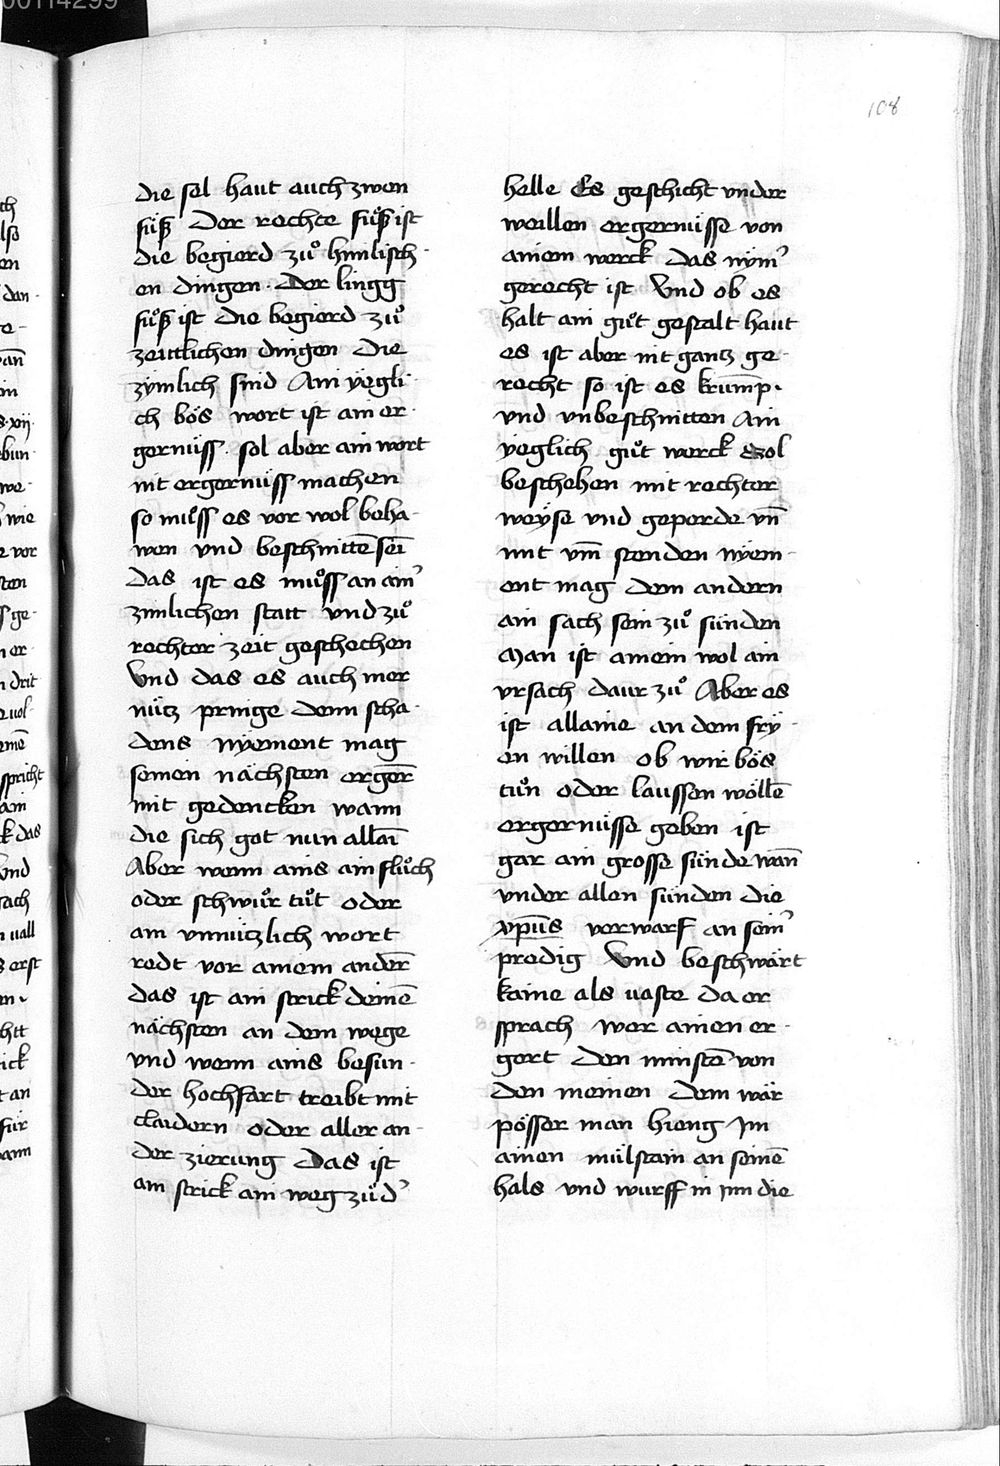 00114299
108
die sel haut auch zwen
füß Der rechte fuͦß ist
die begierd zuͦ himlisch-
en dingen. Der lingg
fuͦß ist die begierd zuͦ
zeittlichen dingen die
zymlich sind Ain yegli-
ch bös wort ist ain er-
gernüss. sol aber ain wort
nit ergernüss machen
so muͦss es vor wol beha-
wen vnd beschnittē sei
das ist es muͦss an aim̉
zimlichen statt vnd zuͦ
rechter zeit geschechen
Vnd das es auch mer
nütz pringe denn scha-
dens nyement mag
seinen nächsten ergerr̄
mit gedencken wann
die sich got nun allai
Aber wenn ains ain fluͦch
oder schwuͦr tuͦt oder
ain vnnützlich wort
redt vor ainem anderr̄
das ist ain strick deinē
nächsten an dem wege
vnd wenn ains besun-
der hochfart treibt mit
claidern oder aller an-
der zierung Das ist
ain strick ain weg zuͦ d̉
helle Es geschicht vnder
weillen ergernüsse von
ainem werck das nym̉
gerecht ist Vnd ob es
halt ain guͦt gestalt haut
es ist aber nit gantz ge-
recht so ist es krump̄.
vnd vnbeschnitten Ain
yeglich guͦt werck sol
beschehen mit rechter
weyse vnd geperde vn̄
mit vm̄ stenden nyem-
ent mag dem andern
ain sach sein zuͦ sünden
Man ist ainem wol ain
vrsach daur zuͦ Aber es
ist allaine an dem fry-
en willen ob wir bös
tuͦn oder laussen wöllē
ergernüsse geben ist
gar ain grosse sünde wan̄
vnder allen sünden die
xp̄us verwarf an seim̉
predig Vnd beschwärt
kaine als vaste Da er
sprach wer ainen er-
gert den minstē von
den meinen dem wär
pösser man hieng im
ainen mülstain an seinē
hals vnd wurff in inn die